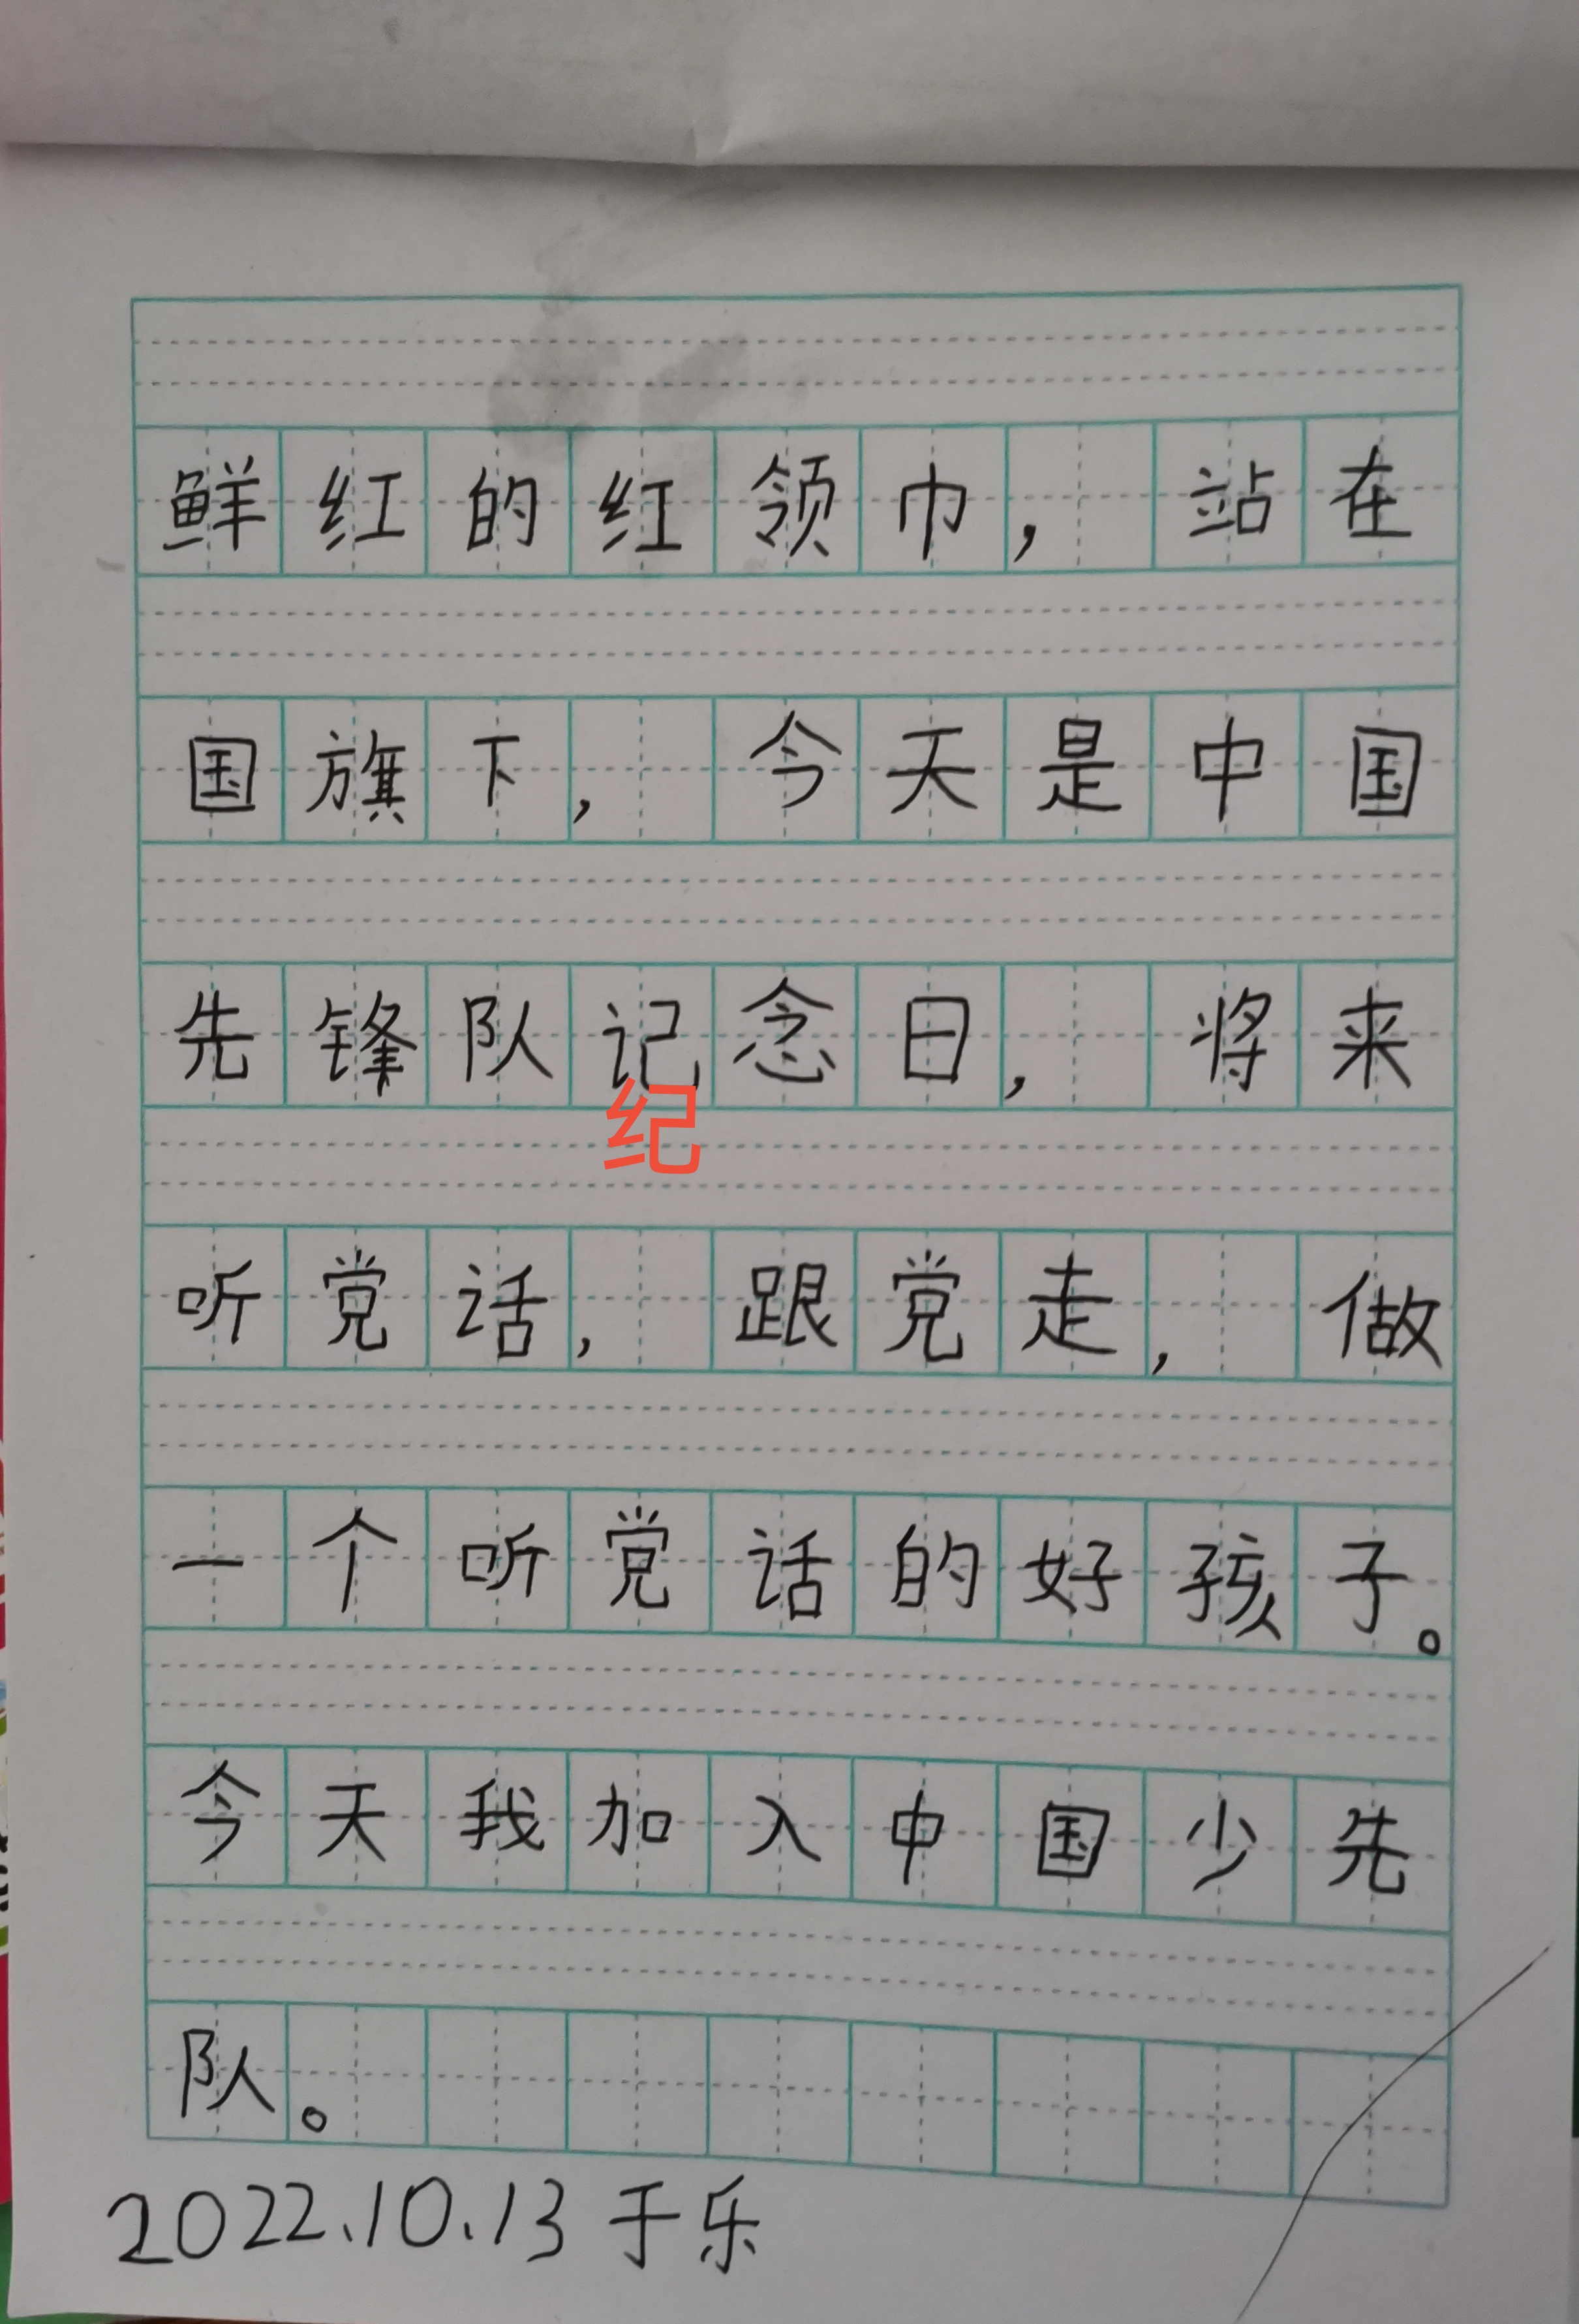 鲜红的红领巾，站在
国旗下，今天是中国
先锋队记念日，将来
纪
听党话，跟党走，做
一个听党话的好孩子。
今天我加入中国少先
队。
2022.10.13于乐